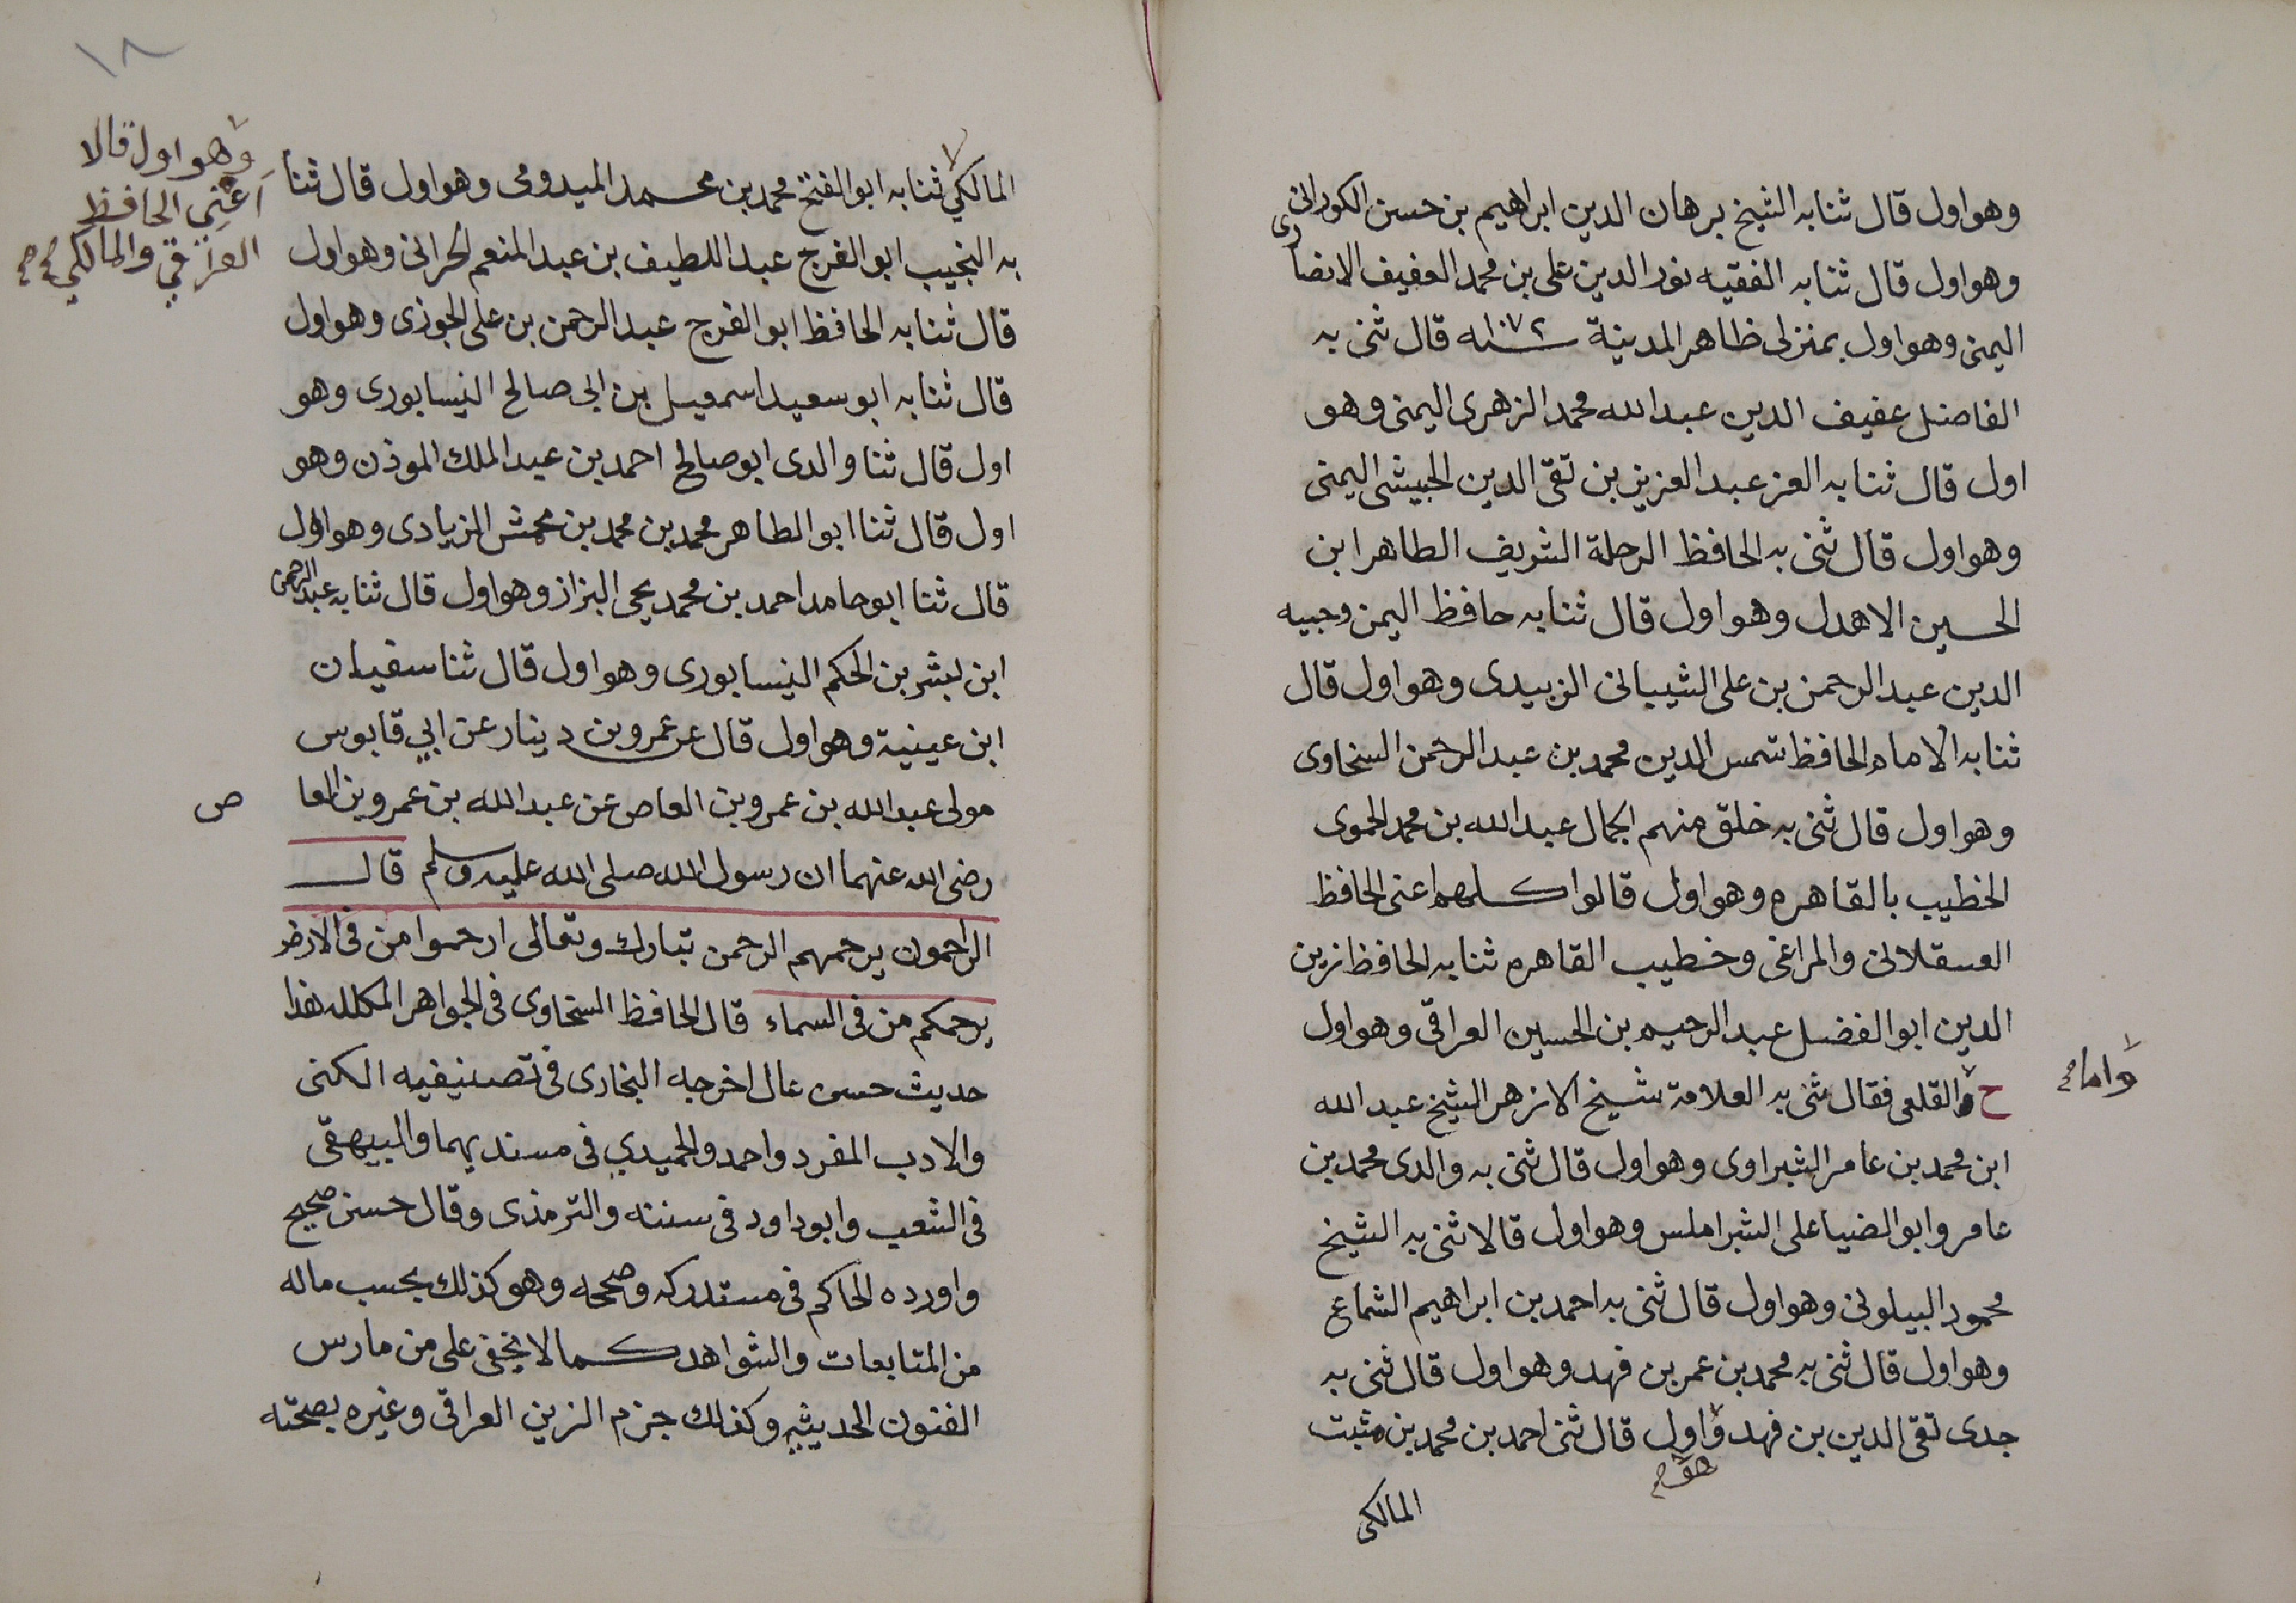 وهو اول قال ثنا به الشيخ برهان الدين ابراهيم بن حسن الكورانى
وهو اول قال ثنا به الفقيه نور الدين على بن محمد العفيف الانصارى
اليمنى وهو اول بمنزلى ظاهر المدينة سنه ١٠٧٢ قال ثنى به
الفاضل عفيف الدين عبد الله محمد الزهرى اليمنى وهو
اول قال ثنا به العز عبد العزيز بن تقى الدين الحبيشى اليمنى
وهو اول قال ثنى به الحافظ الرحلة الشريف الطاهر ابن
الحسين الاهدل وهو اول قال ثنا به حافظ اليمن وجيه
الدين عبد الرحمن بن على الشيبانى الزبيدى وهو اول قال
ثنا به الامام الحافظ شمس الدين محمد بن عبد الرحمن السخاوى
وهو اول قال ثنى به خلق منهم الجمال عبد الله بن محمد الحموى
الخطيب بالقاهره وهو اول قالوا كلهم اعنى الحافظ
العسقلانى والمراغى وخطيب القاهره ثنا به الحافظ زين
الدين ابو الفضل عبد الرحيم بن الحسين العراقى وهو اول
ح والقلعى فقال ثنى به العلامة شيخ الازهر الشيخ عبد الله
واما
ابن محمد بن عامر الشبراوى وهو اول قال ثنى به والدى محمد بن
عامر وابو الضيا على الشبراملس وهو اول قالا ثنى به الشيخ
محمود البيلونى وهو اول قال ثنى به احمد بن ابراهيم الشماع
وهو اول قال ثنى به محمد بن عمر بن فهد وهو اول قال ثنى به
جدى تقى الدين بن فهد و اول قال ثنى احمد بن محمد بن مثبت
هو
المالكى
١٨
المالكي ثنا به ابو الفتح محمد بن محمد الميدومى وهو اول قال ثنا
وهو اول قالا
أعني الحافظ
العراقي والمالكي
به النجيب ابو الفرج عبد اللطيف بن عبد المنعم الحرانى وهو اول
قال ثنا به الحافظ ابو الفرج عبد الرحمن بن على الجوزى وهو اول
قال ثنا به ابو سعيد اسمعيل بن ابى صالح النيسابورى وهو
اول قال ثنا والدى ابو صالح احمد بن عبد الملك الموذن وهو
اول قال ثنا ابو الطاهر محمد بن محمد بن محمش الزيادى وهو اول
قال ثنا ابو حامد احمد بن محمد يحى البزاز وهو اول قال ثنا به عبد الرحمن
ابن بشر بن الحكم النيسابورى وهو اول قال ثنا سفيان
ابن عيينية وهو اول قال عن عمرو بن دينار عن ابي قابوس
مولى عبد الله بن عمرو بن العاص عن عبد الله بن عمرو بن العا ص
رضى الله عنهما ان رسول الله صلى الله عليه وسلم قال
الراحمون يرحمهم الرحمن تبارك وتعالى ارحموا من فى الارض
يرحمكم من فى السماء قال الحافظ السخاوى فى الجواهر المكلله هذا
حديث حسن عال اخرجه البخارى فى تصنيفيه الكنى
والادب المفرد واحمد والحميدي فى مسنديهما والبيهقى
فى الشعب وابو داود فى سننه والترمذى وقال حسن صحيح
واورده الحاكم فى مستدركه وصححه وهو كذلك بحسب ماله
من المتابعات والشواهد كما لا يخفى على من مارس
الفنون الحديثيه وكذلك جزم الزين العراقى وغيره بصحته